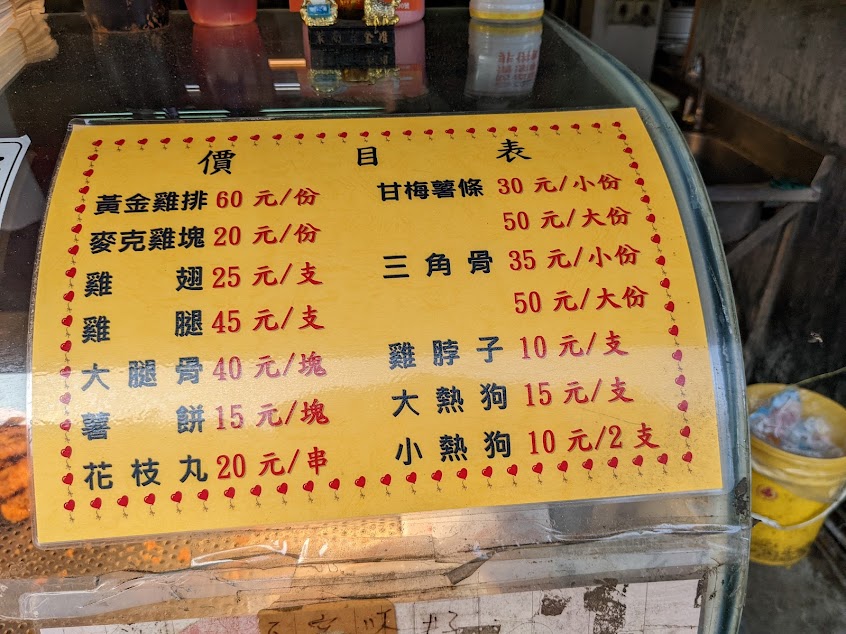 價目表
黃金雞排 60 元/份
麥克雞塊 20 元/份
雞翅 25 元/支
雞腿 45 元/支
大腿骨 40 元/塊
薯餅 15 元/塊
花枝丸 20 元/串
甘梅薯條 30 元/小份
50 元/大份
三角骨 35 元/小份
50 元/大份
雞脖子 10 元/支
大熱狗 15 元/支
小熱狗 10 元/2 支